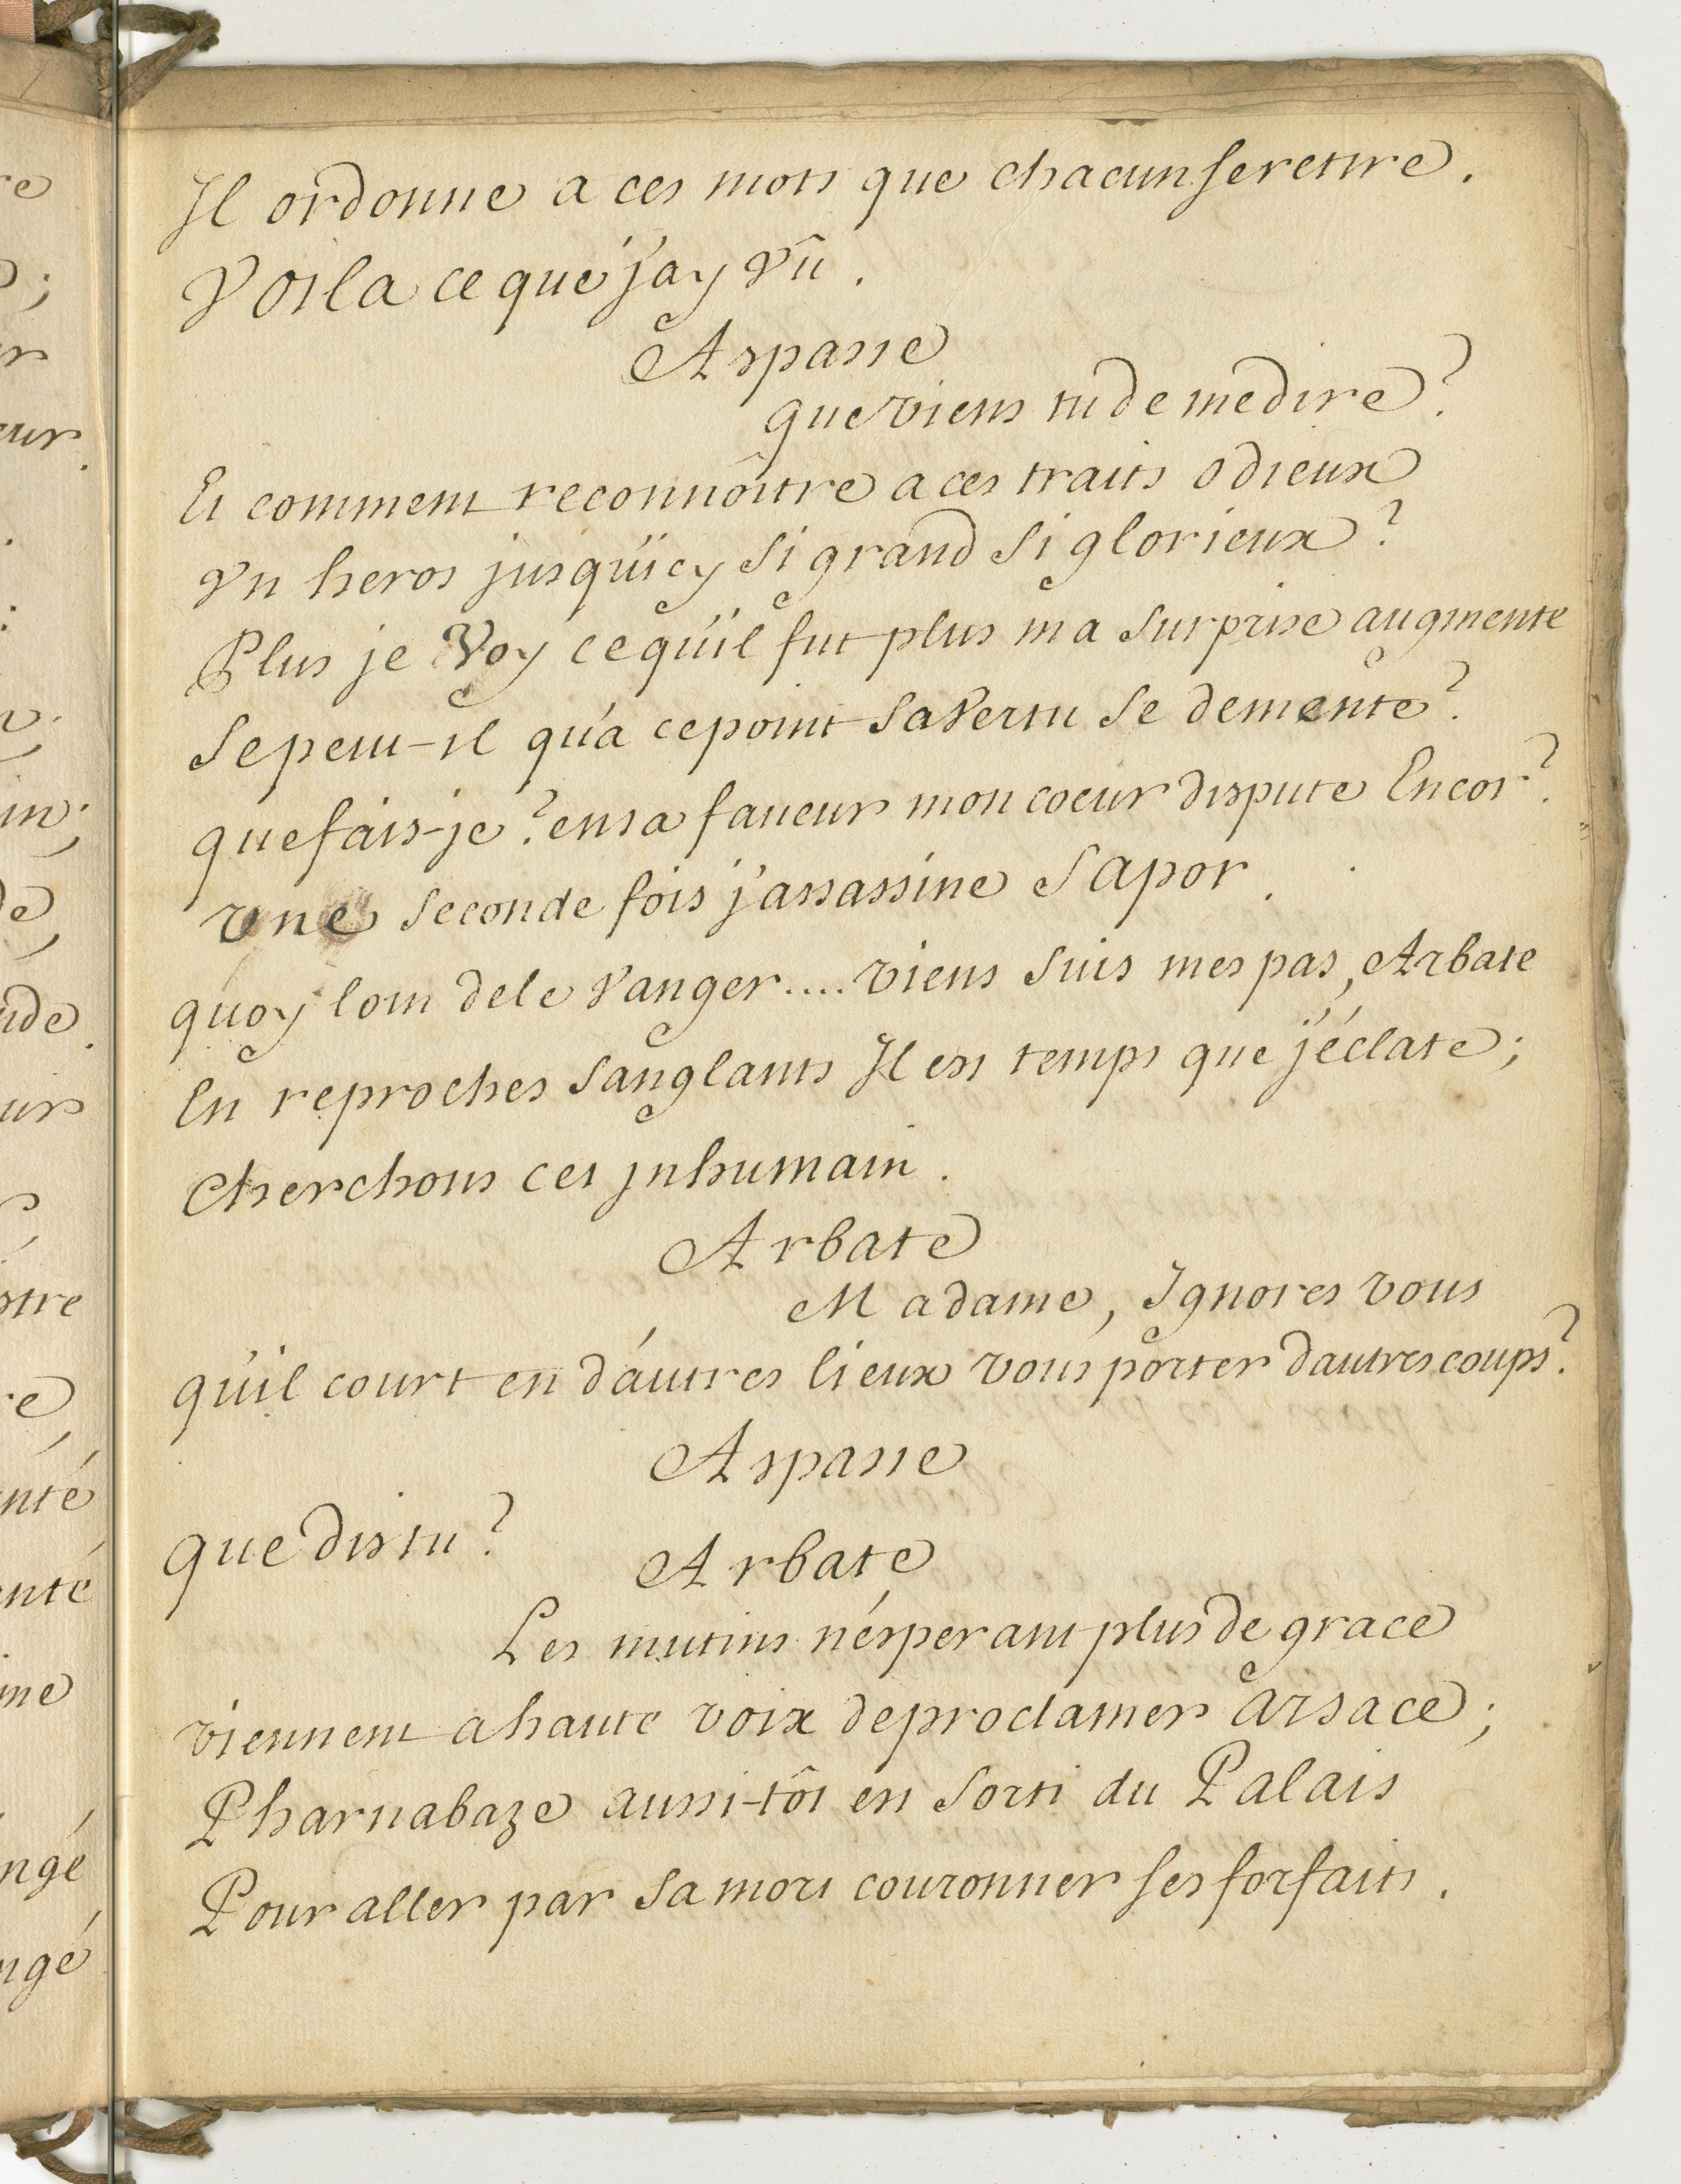 Il ordonne a ces mots que chacun se retire.
Voila ce que j'ay vû.
Aspasie
que viens tu de me dire?
Et comment reconnôitre a ces traits odieux
Vn heros jusqu'icy si grand si glorieux?
Plus je Voy ce qu'il fut plus ma surprise augmente
Se peut-il qu'a ce point sa Vertu se demente?
que fais-je? en sa faueur mon coeur dispute Encor?
vne seconde fois j'assassine Sapor.
quoy loin de le Vanger.... viens suis mes pas, Arbate
En reproches sanglants Il est temps que j'éclate;
Cherchons cet jnhumain.
Arbate
Madame, Ignores vous
qu'il court en d'autres lieux vous porter dautres coups?
Aspasie
que dis tu?
Arbate
Les mutins n'ésperant plus de grace
viennent a haute voix de proclamer arsace;
Pharnabaze aussi-tôt est sorti du Palais
Pour aller par sa mort couronner ses forfaits.